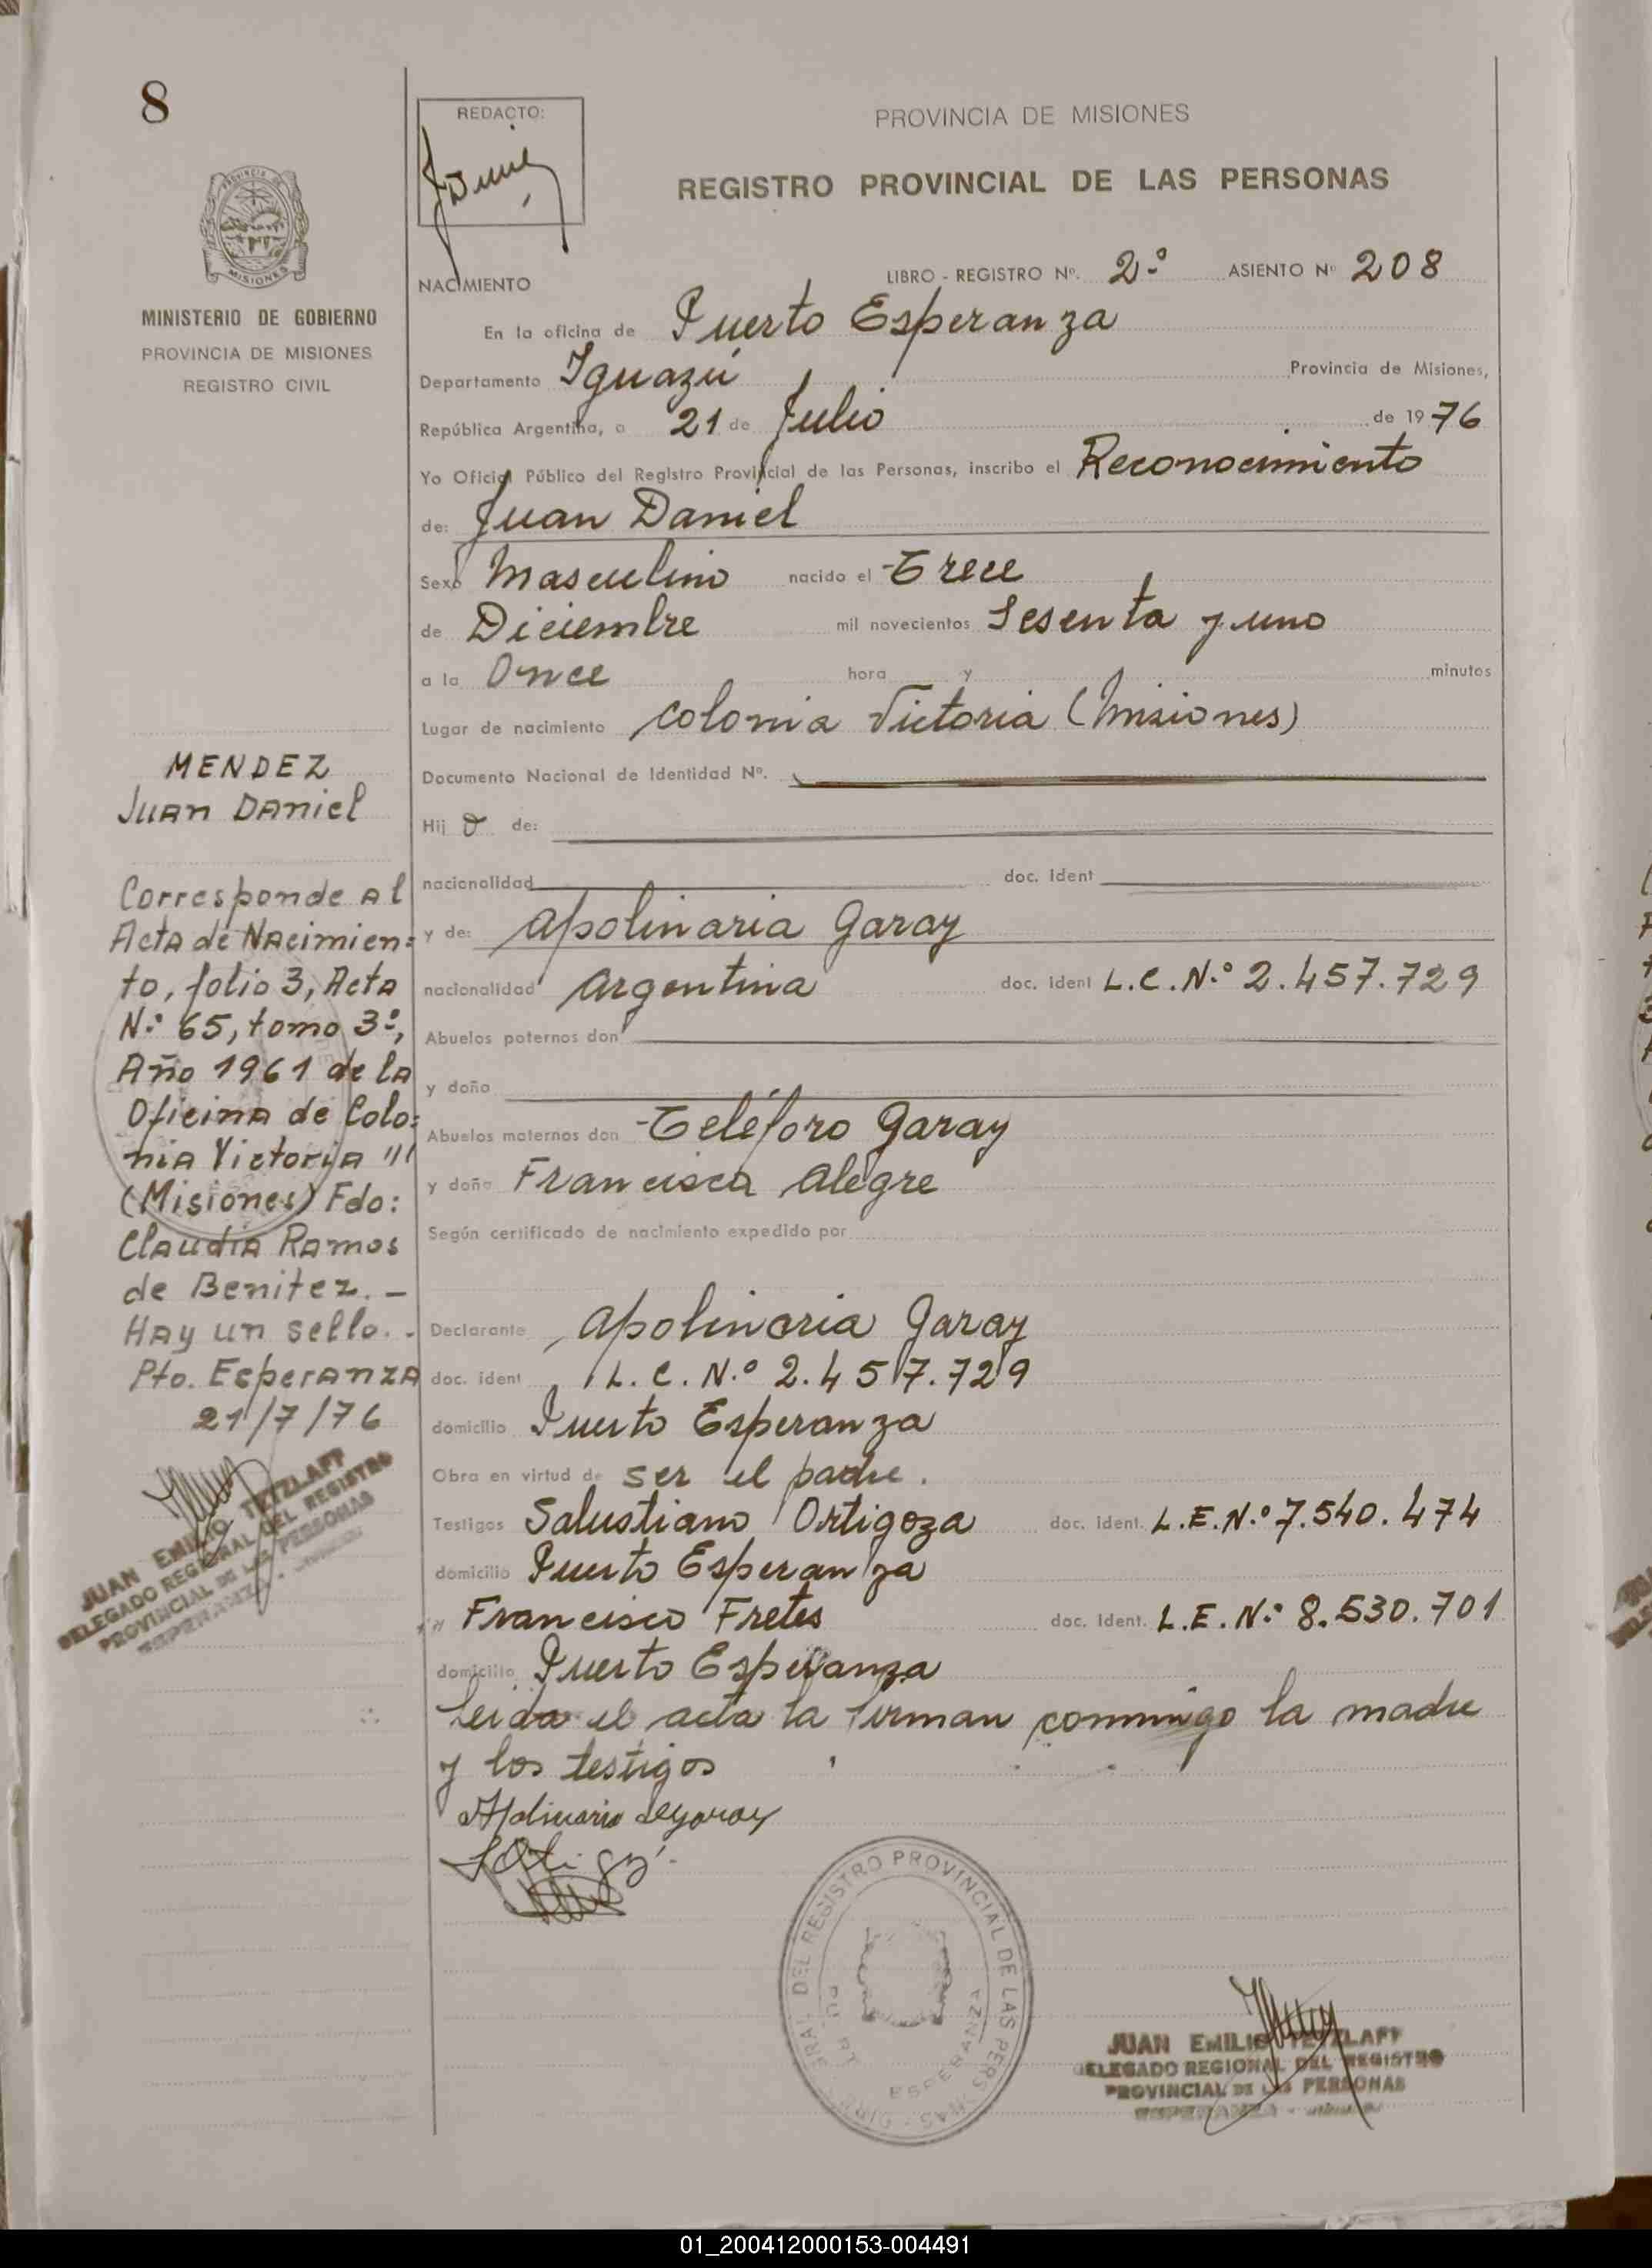 8
REDACTO:
PROVINCIA DE MISIONES
REGISTRO PROVINCIAL DE LAS PERSONAS
PROVINCIA DE
MISIONES
MINISTERIO DE GOBIERNO
PROVINCIA DE MISIONES
REGISTRO CIVIL
NACIMIENTO LIBRO - REGISTRO Nº. 2º ASIENTO Nº 208
En la oficina de Puerto Esperanza
Departamento Iguazú Provincia de Misiones,
República Argentina, a 21 de Julio de 1976
Yo Oficial Público del Registro Provincial de las Personas, inscribo el Reconocimiento
de: Juan Daniel
Sexo Masculino nacido el Trece
de Diciembre mil novecientos Sesenta y uno
a la Once hora y minutos
Lugar de nacimiento Colonia Victoria (Misiones)
Documento Nacional de Identidad Nº.
Hijo de:
nacionalidad doc. ident
y de: Apolinaria Garay
nacionalidad Argentina doc. ident L.C.N.º 2.457.729
Abuelos paternos don
y doña
Abuelos maternos don Teléforo Garay
y doña Francisca Alegre
Según certificado de nacimiento expedido por
Declarante Apolinaria Garay
doc. ident L.C.N.º 2.457.729
domicilio Puerto Esperanza
Obra en virtud de ser el padre.
Testigos Salustiano Ortigoza doc. ident. L.E.N.º 7.540.474
domicilio Puerto Esperanza
Francisco Fretes doc. ident. L.E.N.º 8.530.701
domicilio Puerto Esperanza
Leida el acta la firman conmigo la madre
y los testigos
MENDEZ
Juan Daniel
Corresponde al
Acta de Nacimien=
to, folio 3, Acta
N.º 65, tomo 3º,
Año 1961 de la
Oficina de Colo=
nia Victoria "
(Misiones) Fdo:
Claudia Ramos
de Benitez. -
Hay un sello. -
Pto. Esperanza
21/7/76
JUAN EMILIO TETZLAFF
DELEGADO REGIONAL DEL REGISTRO
PROVINCIAL DE LAS PERSONAS
ESPERANZA
DEL REGISTRO PROVINCIAL DE LAS PERSONAS
ESPERANZA
JUAN EMILIO TETZLAFF
DELEGADO REGIONAL DEL REGISTRO
PROVINCIAL DE LAS PERSONAS
ESPERANZA
01_200412000153-004491